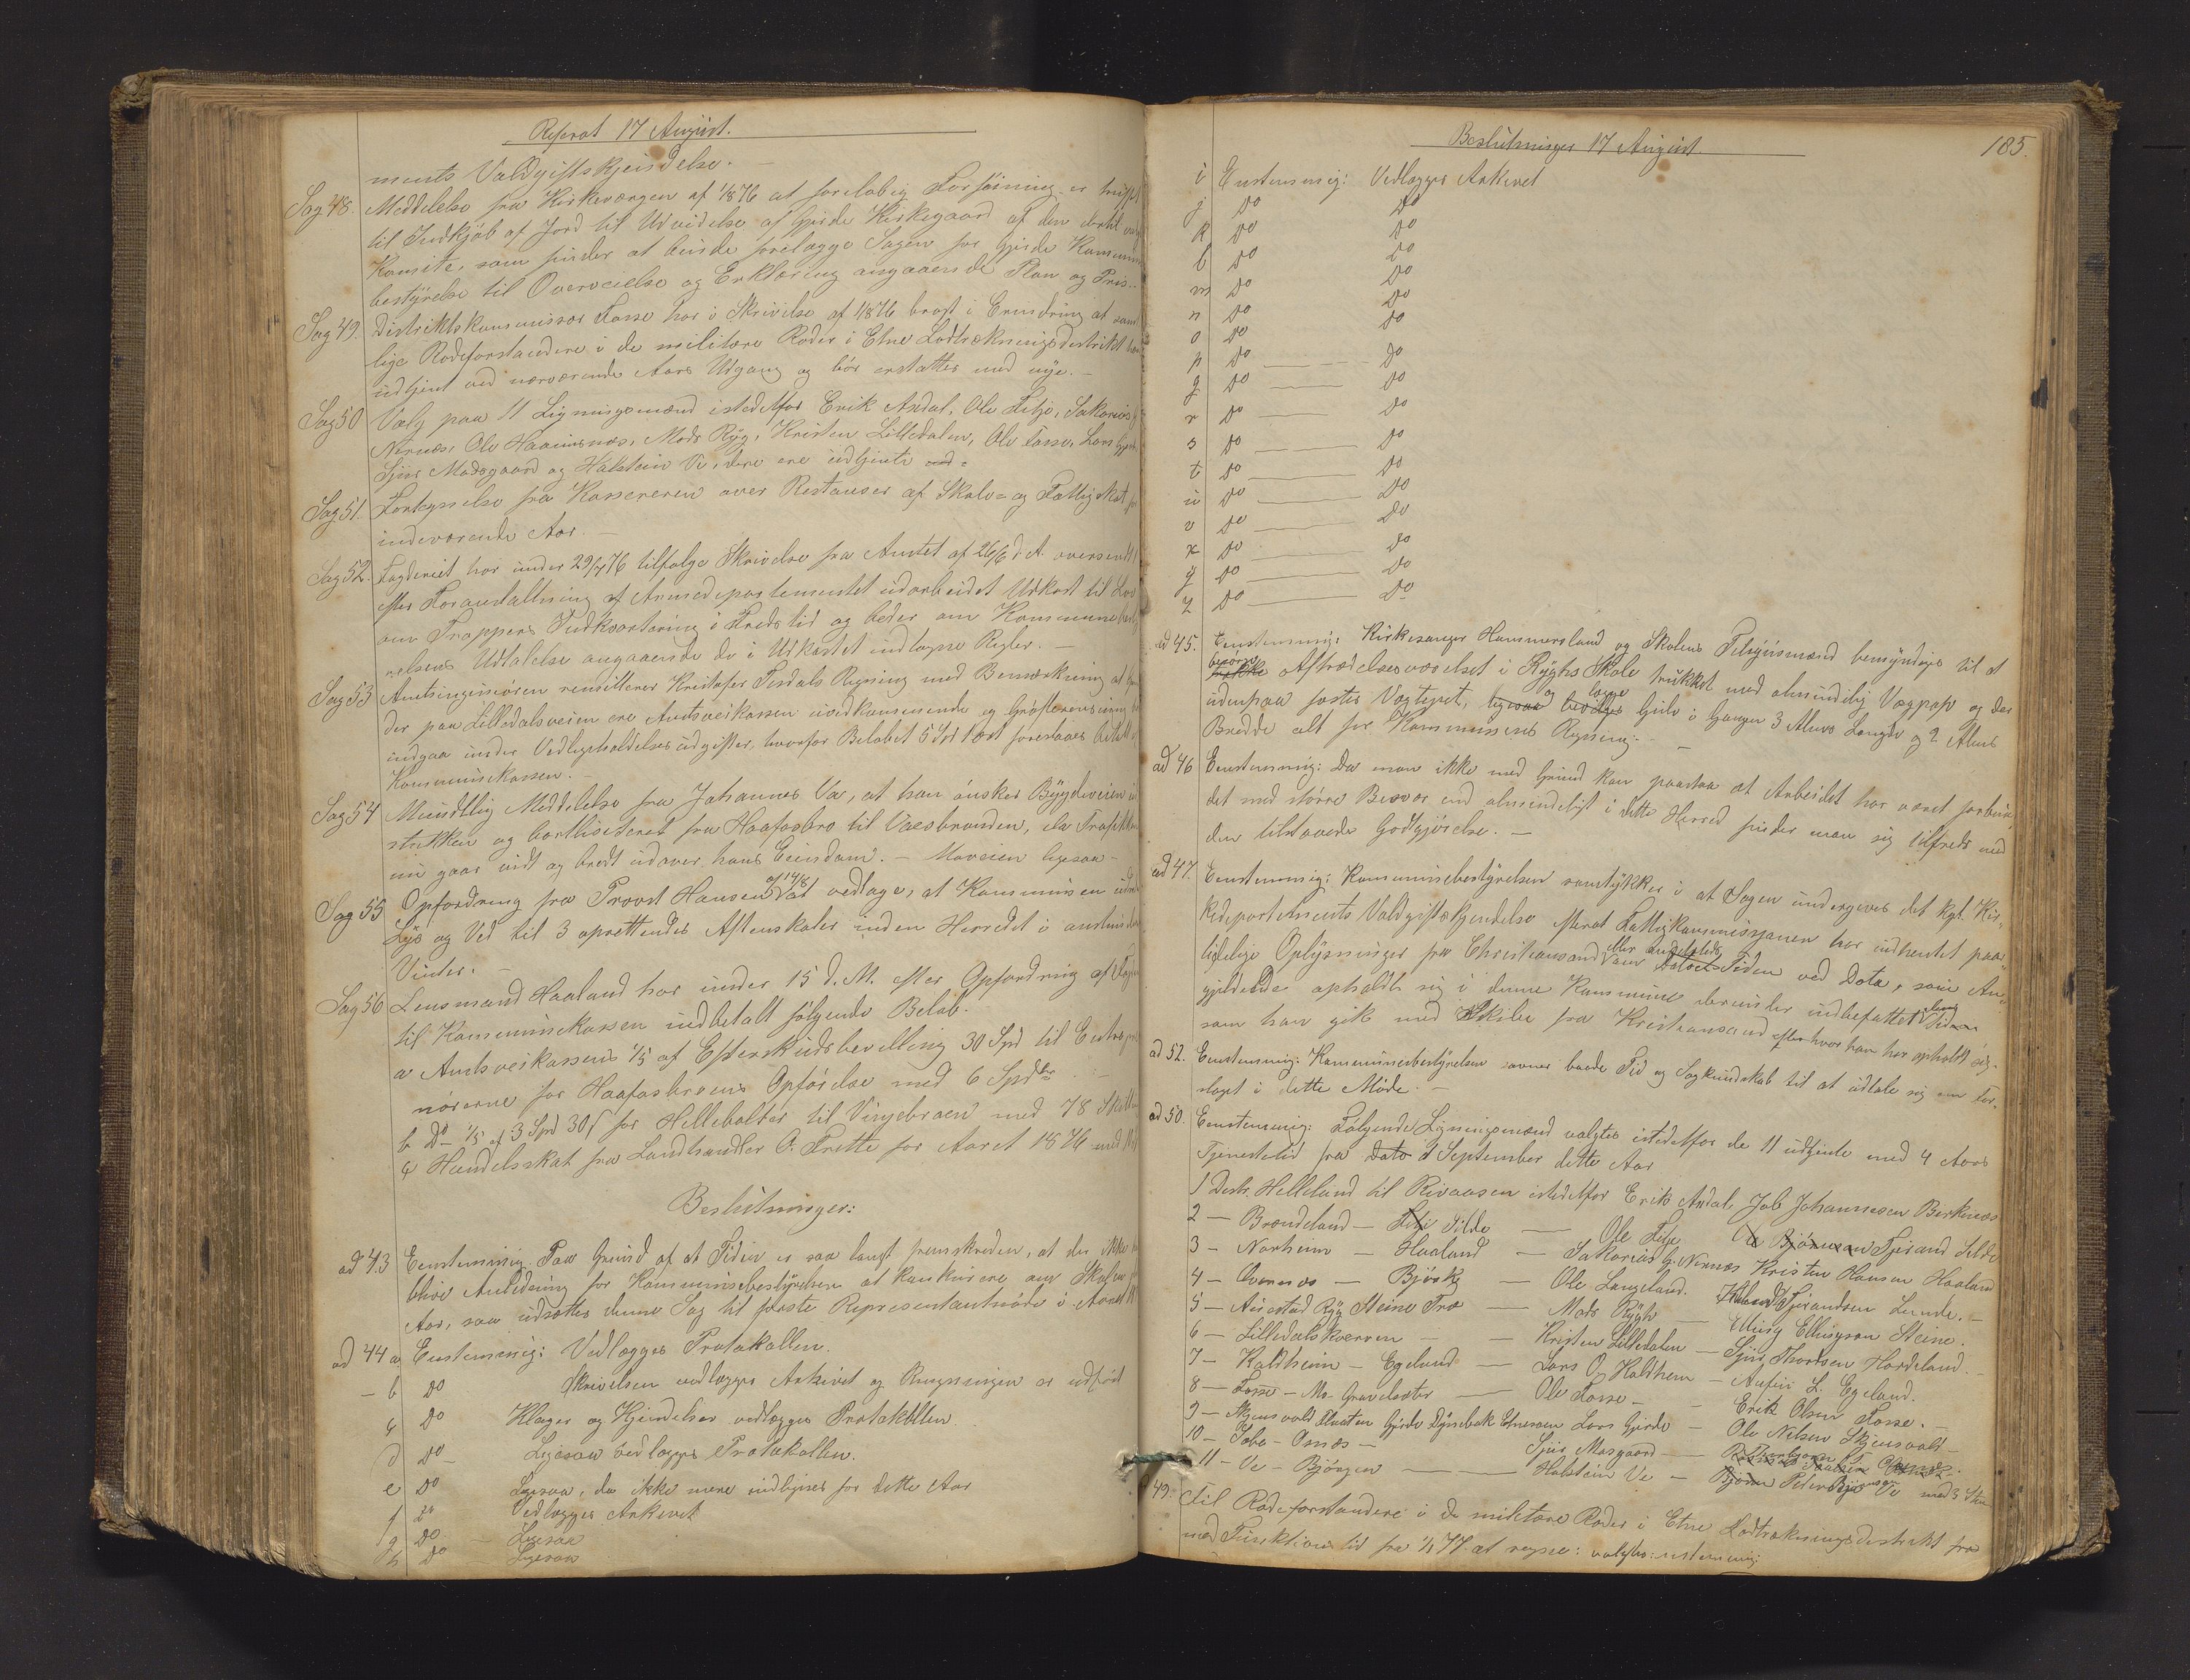 Referat 17 August.
ments Voldgiftskjendelse. —
Sag 48. Meddelelse fra Kirkeværgen af 1/8 76 at foreløbig Forføining er truffet
til Indkjøb af Jord til Udvidelse af Gjerde Kirkegaard af den dertil
Komite, som finder at burde forelægge Sagen for Gjerde Kommune
bestyrelse til Overveielse og Erklæring angaaende Plan og Pris. —
Sag 49. Distriktskommissær Fosse har i Skrivelse af 1/8 76 bragt i Erindring at sam
lige Rodeforstandere i de militære Roder i Etne Lodtrækningsdistrikt
udtjent ved nærværende Aars Udgang og bør erstattes med nye. —
Sag 50 Valg paa 11 Ligningsmænd istedetfor Erik Ardal, Ole Litje, Sakarias
Nernæs, Ole Mads Ryg, Kristen Lilledalen, Ole Fosse, Lars
Sjur Madsgaard og Halstein Ve, dere ere udtjente
Sag 51. Fortegnelse fra Kassereren over Restanser af Skole- og Fattigskat
indeværende Aar —
Sag 52. Fogderiet har under 29/7 76 tilfølge Skrivelse fra Amtet af 26/6 d. A. oversendt
efter Foranstaltning af Armedepartementet udarbeidet Udkast til
om Troppers Indkvartering i Fredstid og beder om Kommunebest
relsens Udtalelse angaaende de i Udkastet indtagne Regler. —
Sag 53 Amtsingeniøren remitterer Kristofer Tesdals Regning med Bemærkning at
der paa Lilledalsveien ere Amtsveikassen uvedkommende og Grøfterensning
indgaa under Vedligeholdelsesudgifter, hvorfor Beløbet 5 Spd 1 ort foreslaaes
Kommunekassen. —
Sag 54 Mundtlig Meddelelse fra Johannes Væ, at han ønsker Bygdeveien
stukken og bortliciteret fra Haafosbro til Vaesbrunden, da Trafikken
nu gaar vidt og bredt udover hans Eiendom. — Moveien ligesaa —
Sag 55 Opfordring fra Provst Hansen af 14/8 at vedtage, at Kommunen
Lys og Ved til 3 oprettendes Aftenskoler inden Herredet i
Vinter. —
Sag 56 Lensmand Haaland har under 15 d. M. efter Opfordring af
til Kommunekassen indbetalt følgende Beløb.
a Amtsveikassens 1/5 af Efterskudsbevilling 30 Spd til Entrepre
nørerne for Haafosbroens Opførelse med 6 Spdlr —
b Do 1/5 af 3 Spd 30 s for Hellebolter til Vinjebroen med 78 Skill
c Handelsskat fra Landhandler O. Frette for Aaret 1876 med
Beslutninger:
ad 43 Eenstemmig: Paa Grund af at Tiden er saa langt fremskreden, at der ikke
blive Anledning for Kommunebestyrelsen at konkurere om Skolen
Aar, saa udsættes denne Sag til første Representantmøde i Aaret
ad 44 a Eenstemmig: Vedlægges Protokollen.
— b Do Skrivelsen vedlægges Arkivet og Rengningen er udført
c Do Klager og Kjendelser vedlægges Protokollen.
d Do — Ligesaa vedlægges Protokollen.
e Do Ligesaa, da ikke mere indtjnes for dette Aar
f Do Vedlægges Arkivet
g Do Ligesaa
h Do Ligesaa
Beslutninger 17 August. 185.
i Enstemmig: Vedlægges Arkivet
j Do Do
k Do Do
l Do Do
m Do Do
n Do Do
o Do Do
p Do — Do
q Do — Do
r Do — Do
s Do — Do
t Do — Do
u Do — Do
v Do — Do
x Do — Do
y Do — Do
z Do — Do
ad 45. Eenstemmig: Kirkesanger Hammersland og Skolens Tilsynsmænd bemyndiges til at
besørge Aftrædelsesværelset i Ryghs Skole trukket med almindelig Vægpap og der
udenpaa fæstes Vægtepet, ligesaa og bevilges lægge Gulv i Gangen 3 Alens Længde og 2 Alens
Bredde alt for Kommunens Regning. —
ad 46 Eenstemmig: Da man ikke med Grund kan paastaa at Arbeidet har været forbun
det med større Besvær end almindeligt i dette Herred finder man sig tilfreds med
den tilstaaede Godtgjørelse. —
ad 47. Eenstemmig: Kommunebestyrelsen samtykker i at Sagen undergives det kgl. Kir-
kedepartements Voldgiftskjendelse efterat Fattigkommissjonen har indhentet paa-
lidelige Oplysninger fra Christiansand eller andetsteds om Tiden ved Dato, som An-
gjældende opholdt sig i denne Kommune derunder indbefattet den Tid
som han gik med Skibe fra Kristiansand efter hvor han har opholdt sig.
ad 52. Eenstemmig: Kommunebestyrelsen savner baade Tid og Sagkundskab til at udtale sig om For-
slaget i dette Møde. —
ad 50. Eenstemmig: Følgende Ligningsmænd valgtes istedetfor de 11 udtjente med 4 Aars
Tjenestetid fra Dato 1 September dette Aar
1 Destr. Helleland til Rivaasen istedetfor Erik Ardal Job Johannesen Berknæs
2 — Brændeland — Silde — Ole Litje Tjerand Silde
3 — Norheim — Haaland — Sakarias G. Nernæs Kristen Hansen Haaland
4 — Overnæs — Bjørk — Ole Langeland. Tjerandsen Lunde. —
5 — Austad Ryg Steine Træ — Mads Rygh — Elling Ellingson Steine.
6 — Lilledalskværven — — Kristen Lilledalen — Sjur Thordsen Hardeland. —
7 — Kaldheim — Egeland — Lars O. Kaldheim — Aufin L. Egeland.
8 — Fosse — Mo Gravelseter — Ole Fosse — Erik Olsen Fosse. —
9 — Skjensvold Fluaten Gjerde Dynebak Etnesøen Lars Gjerde — Ole Nelsen Skjensvold —
10 — Osnæs — Sjur Masgaard —
11 — Ve — Bjørgen — — Halstein Ve — Peter Ve med 3 Stem
49. Til Rodeforstandere i de militære Roder i Etne Lodtrækningsdistrikt fra
med Funktions tid fra 1/1 77 at regne: valgtes: enstemmig: